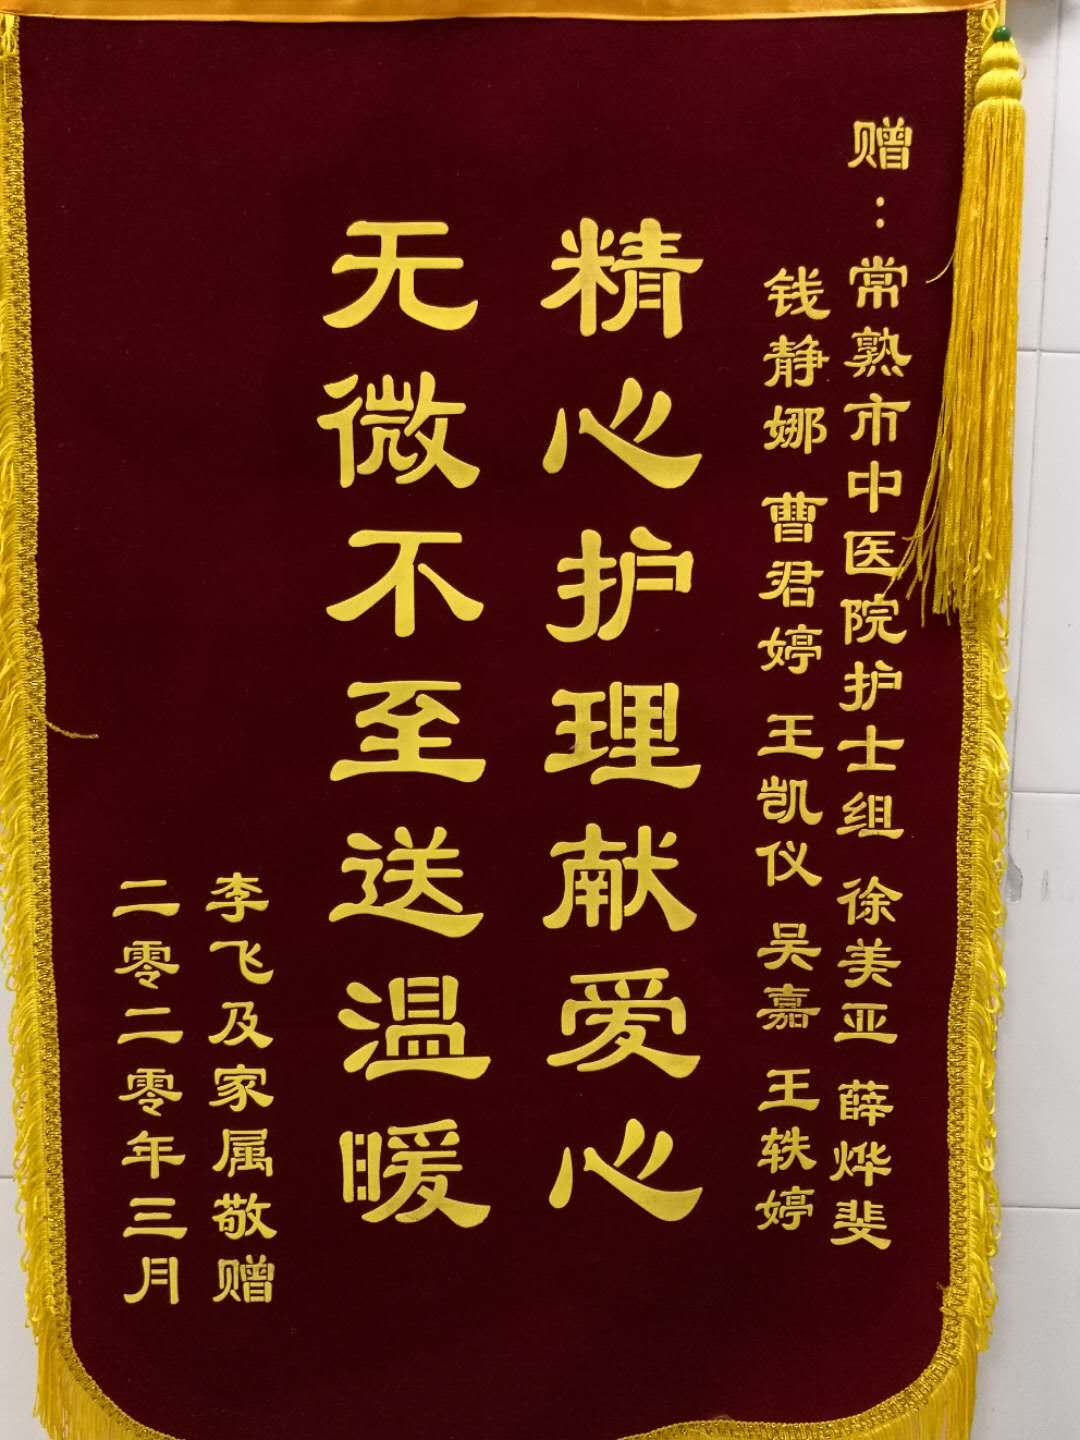 赠：常熟市中医院护士组 徐美亚 薛烨斐
钱静娜 曹君婷 王凯仪 吴嘉 王轶婷
精心护理献爱心
无微不至送温暖
李飞及家属敬赠
二零二零年三月